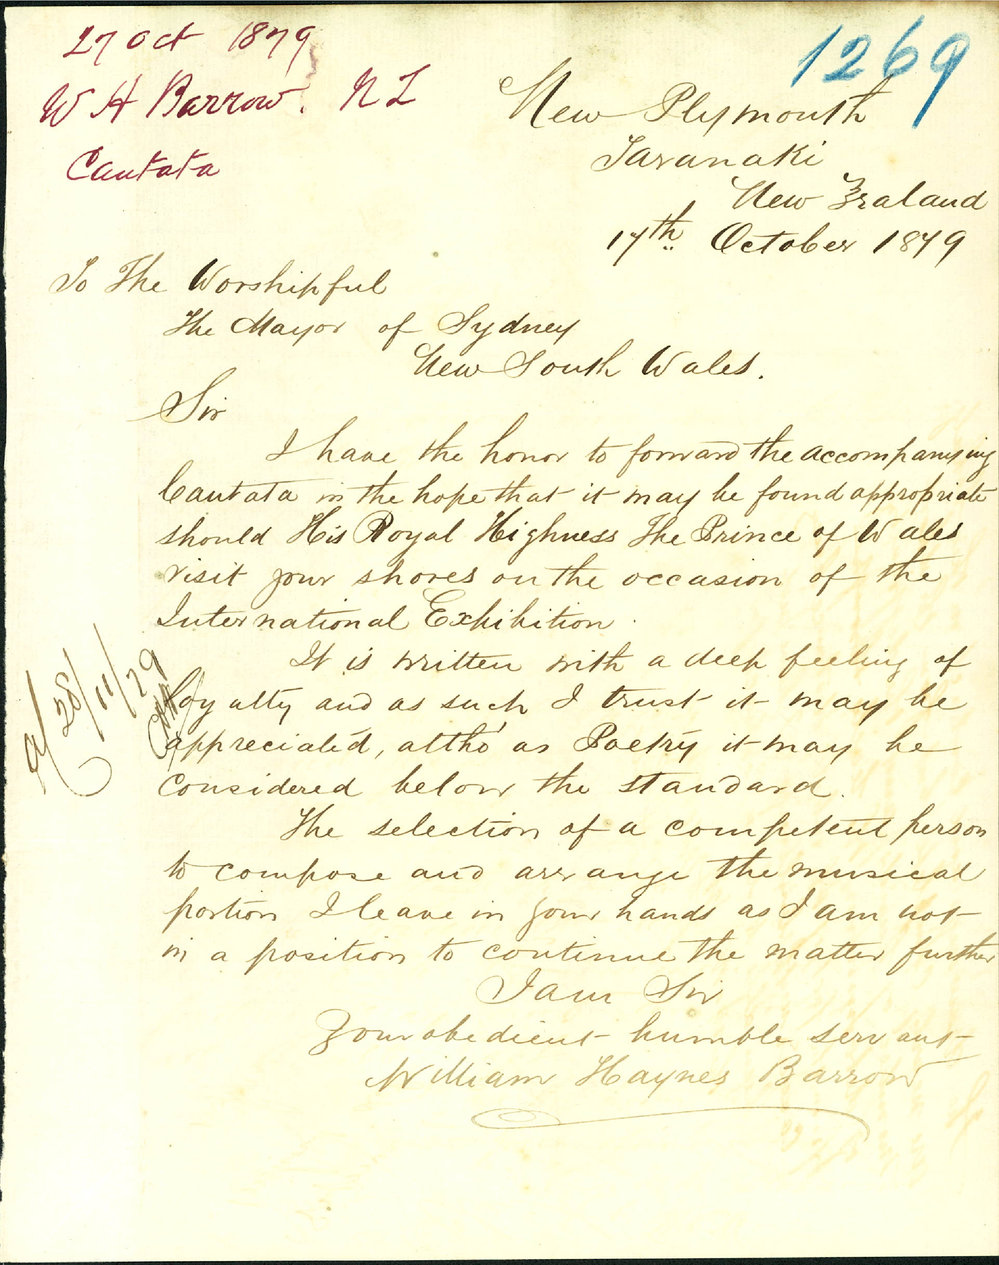 27 Oct 1879
W H Barrow. N Z
Cantata
1269
New Plymouth
Taranaki
New Zealand
17th October 1879
To The Worshipful
The Mayor of Sydney
New South Wales.
Sir
I have the honor to forward the accompanying
Cantata in the hope that it may be found appropriate
should His Royal Highness The Prince of Wales
visit your shores on the occasion of the
International Exhibition.
It is written with a deep feeling of
Loyalty and as such I trust it may be
appreciated, altho' as Poetry it may be
considered below the standard.
The selection of a competent person
to compose and arrange the musical
portion I leave in your hands as I am not
in a position to continue the matter further
I am Sir
Your obedient humble servant
William Haynes Barrow
28/11/79